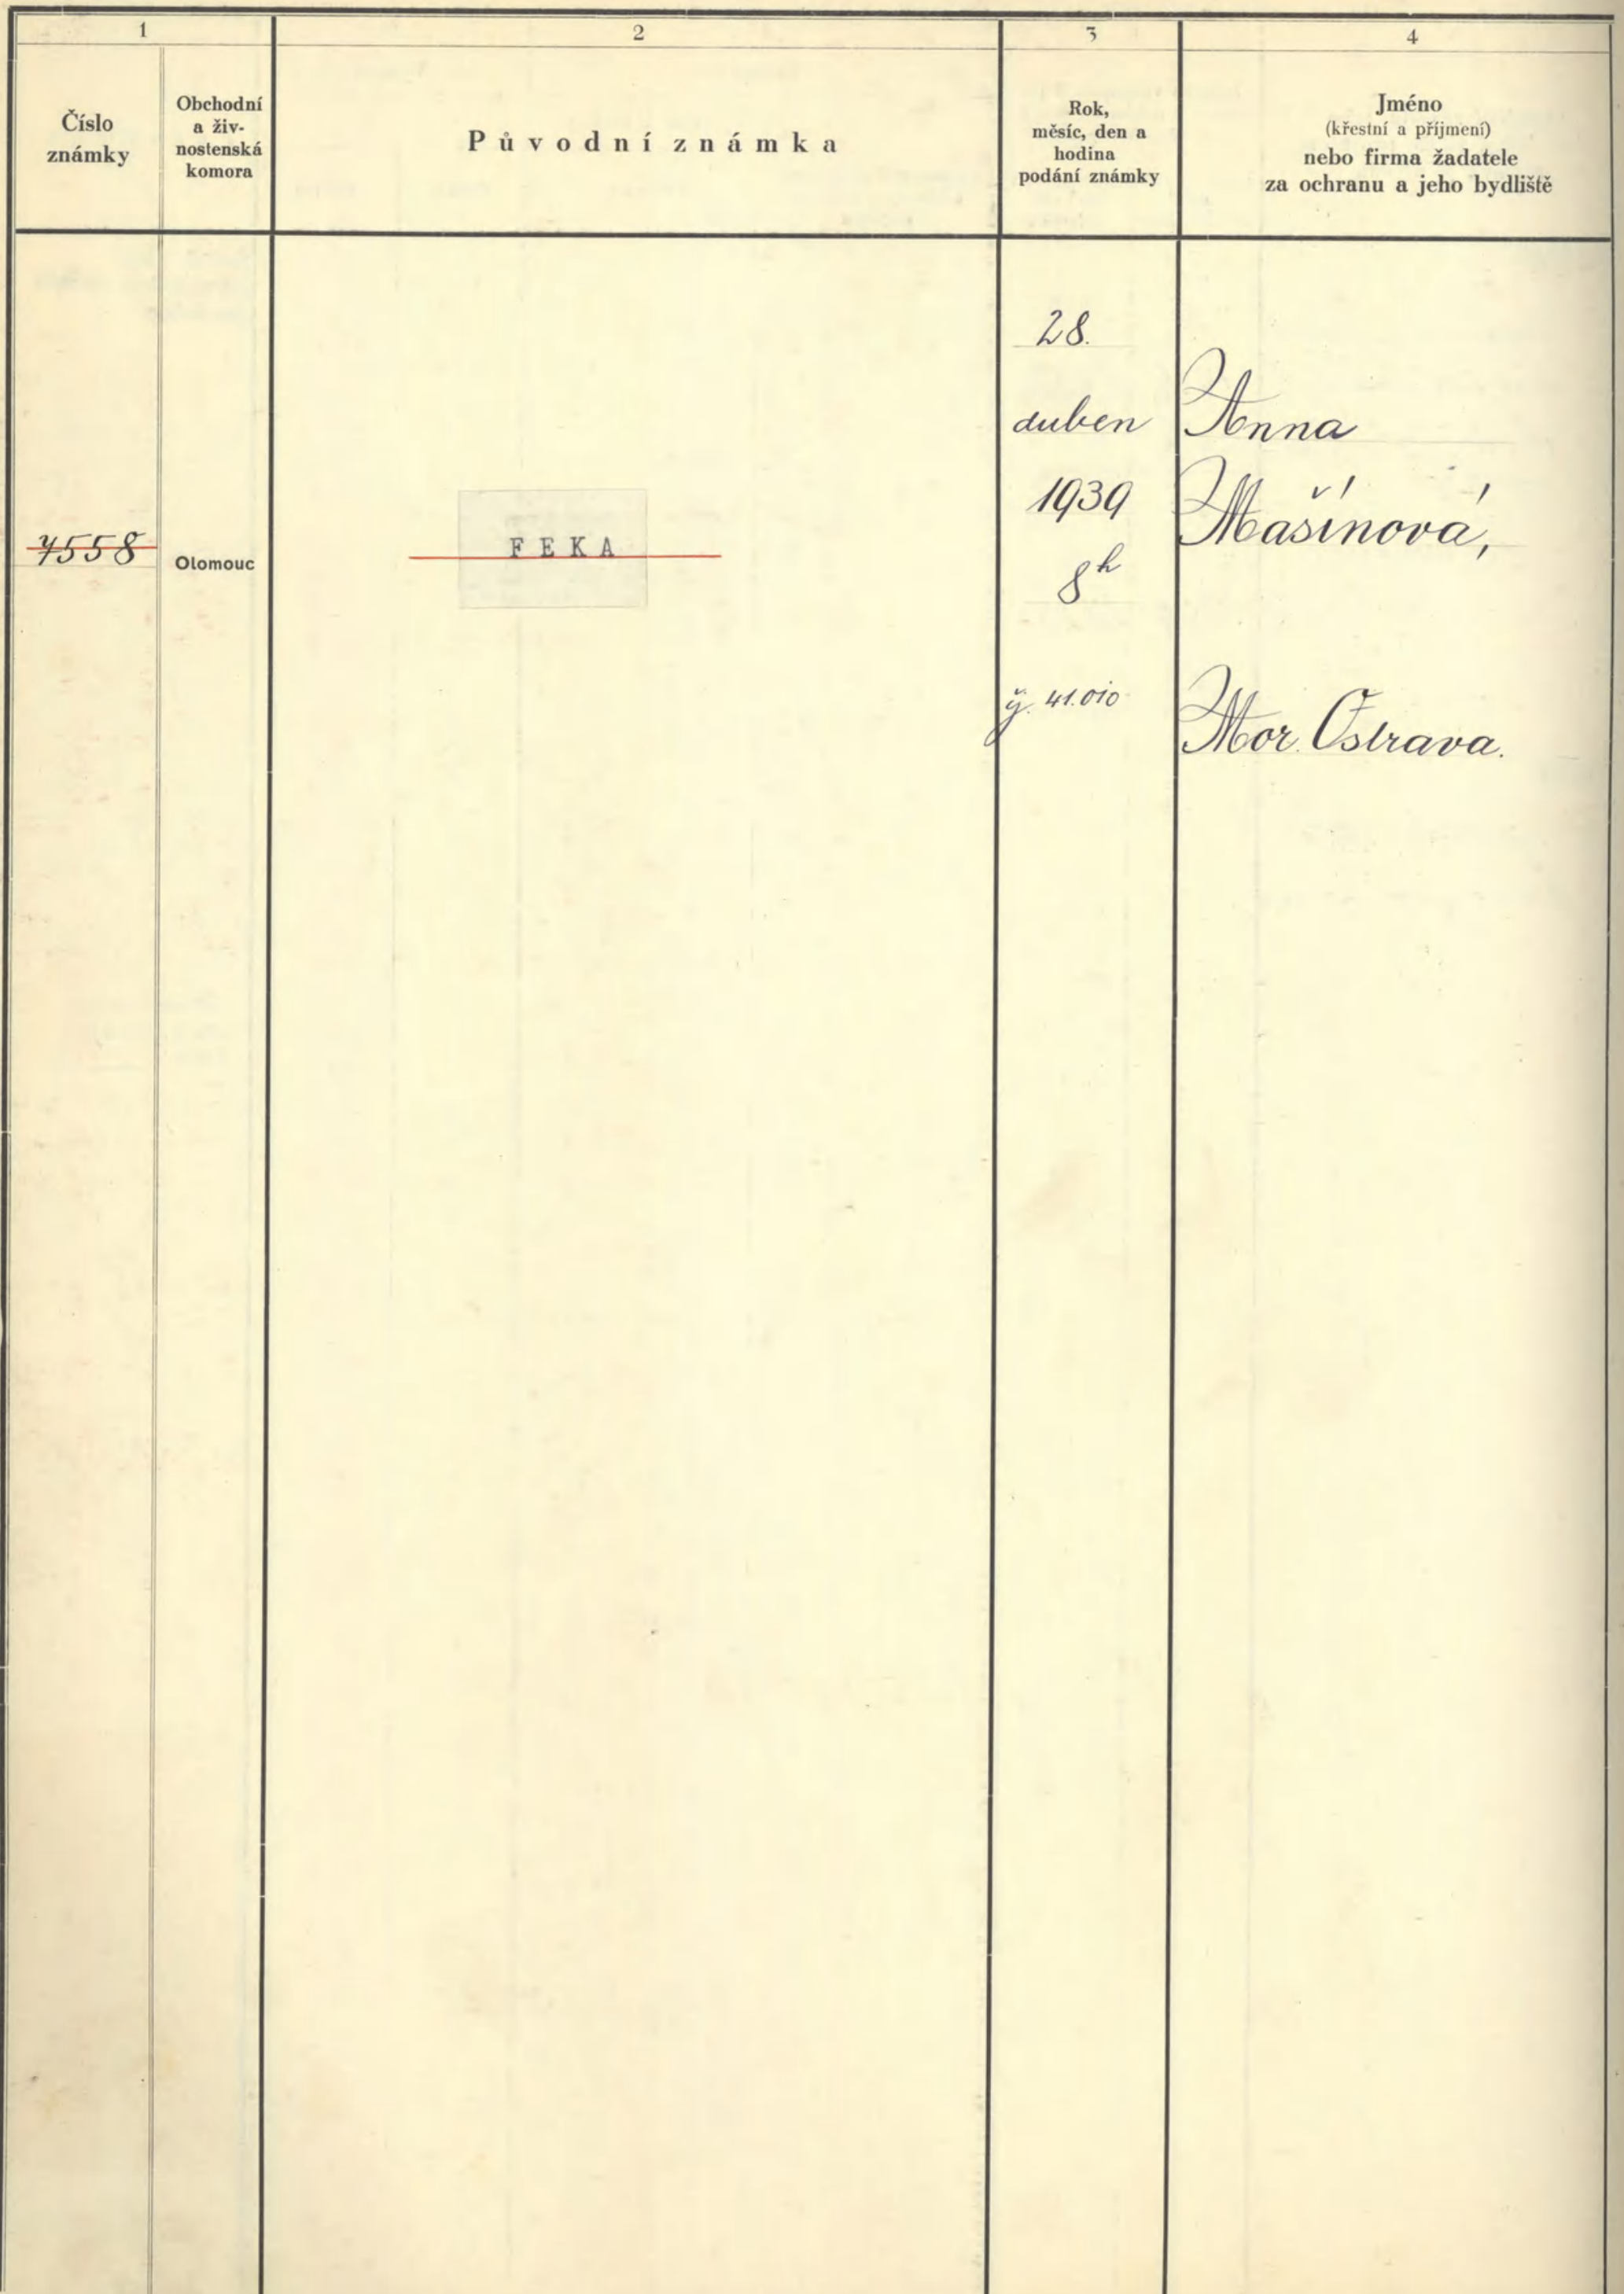 1
2
3
4
Číslo
známky
Obchodní
a živ-
nostenská
komora
Původní známka
Rok,
měsíc, den a
hodina
podání známky
Jméno
(křestní a příjmení)
nebo firma žadatele
za ochranu a jeho bydliště
4558
Olomouc
FEKA
28.
duben
1939
8h
č. 41.010
Anna
Mašínová,
Mor. Ostrava.